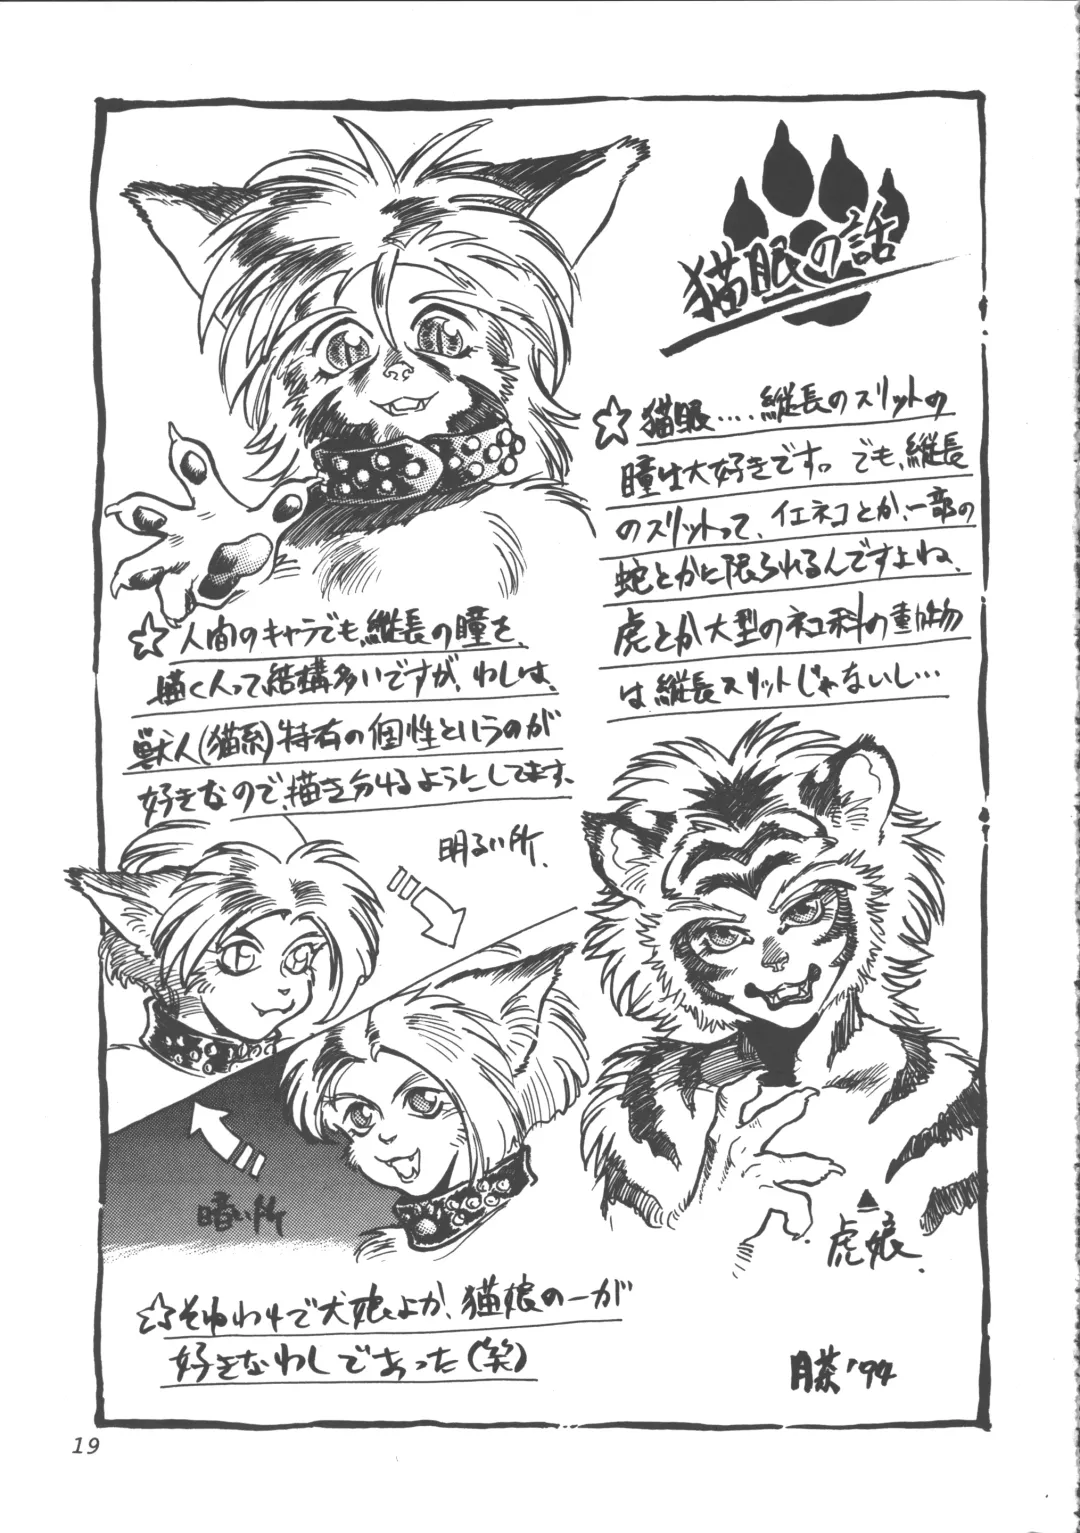 猫眼の話
☆猫眼‥‥縦長のスリットの
瞳は大好きです。でも、縦長
のスリットって、イエネコとか、一部の
蛇とかに限られるんですよね、
虎とか大型のネコ科の動物
は縦長スリットじゃないし…
☆人間のキャラでも、縦長の瞳を、
描く人って結構多いですが、わしは、
獣人(猫系)特有の個性というのが
好きなので、描き分けるようにしてます。
明るい所、
暗い所
▲
虎娘.
☆そんなわけで犬娘よか、猫娘の一が
好きなわしであった(笑)
月茶'94
19